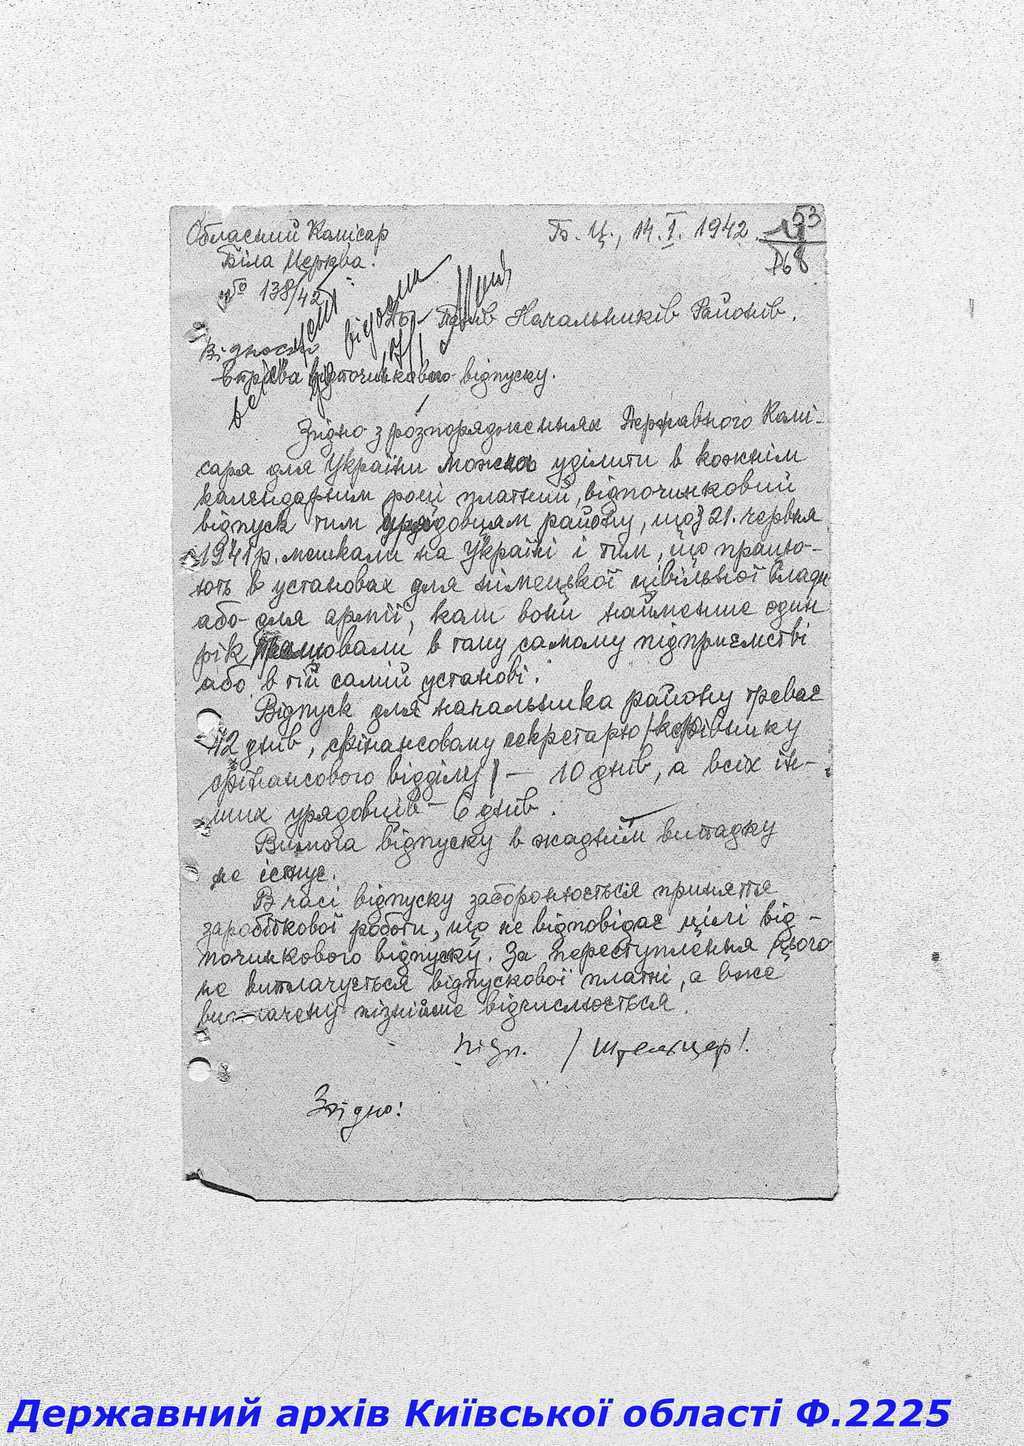 Обласний Комісар
Біла Церква.
№ 138/42
Б. Ц., 14.I.1942.
53
До Панів Начальників Районів.
Відносно
відпочинкового відпуску.
Згідно з розпорядженнях Державного Комі-
саря для України можна уділити в кожнім
календарнім році платний, відпочинковий
відпуск тим урядовцям району, що з 21. червня
1941 р. мешкали на Україні і тим, що працю-
ють в установах для німецької цивільної влади
або для армії, коли вони найменше один
рік працювали в тому самому підприємстві
або в тій самій установі.
Відпуск для начальника району треває
12 днів, фінансовому секретарю /керівнику
фінансового відділу/ — 10 днів, а всіх ін-
ших урядовців — 6 днів.
Вимога відпуску в жаднім випадку
не існує.
В часі відпуску забороняється приняття
заробіткової роботи, що не відповідає цілі від-
починкового відпуску. За переступлення цього
не виплачується відпускової платні, а вже
виплачену пізнійше відчислюється.
підп. /Штельцер/.
Згідно:
Державний архів Київської області Ф.2225